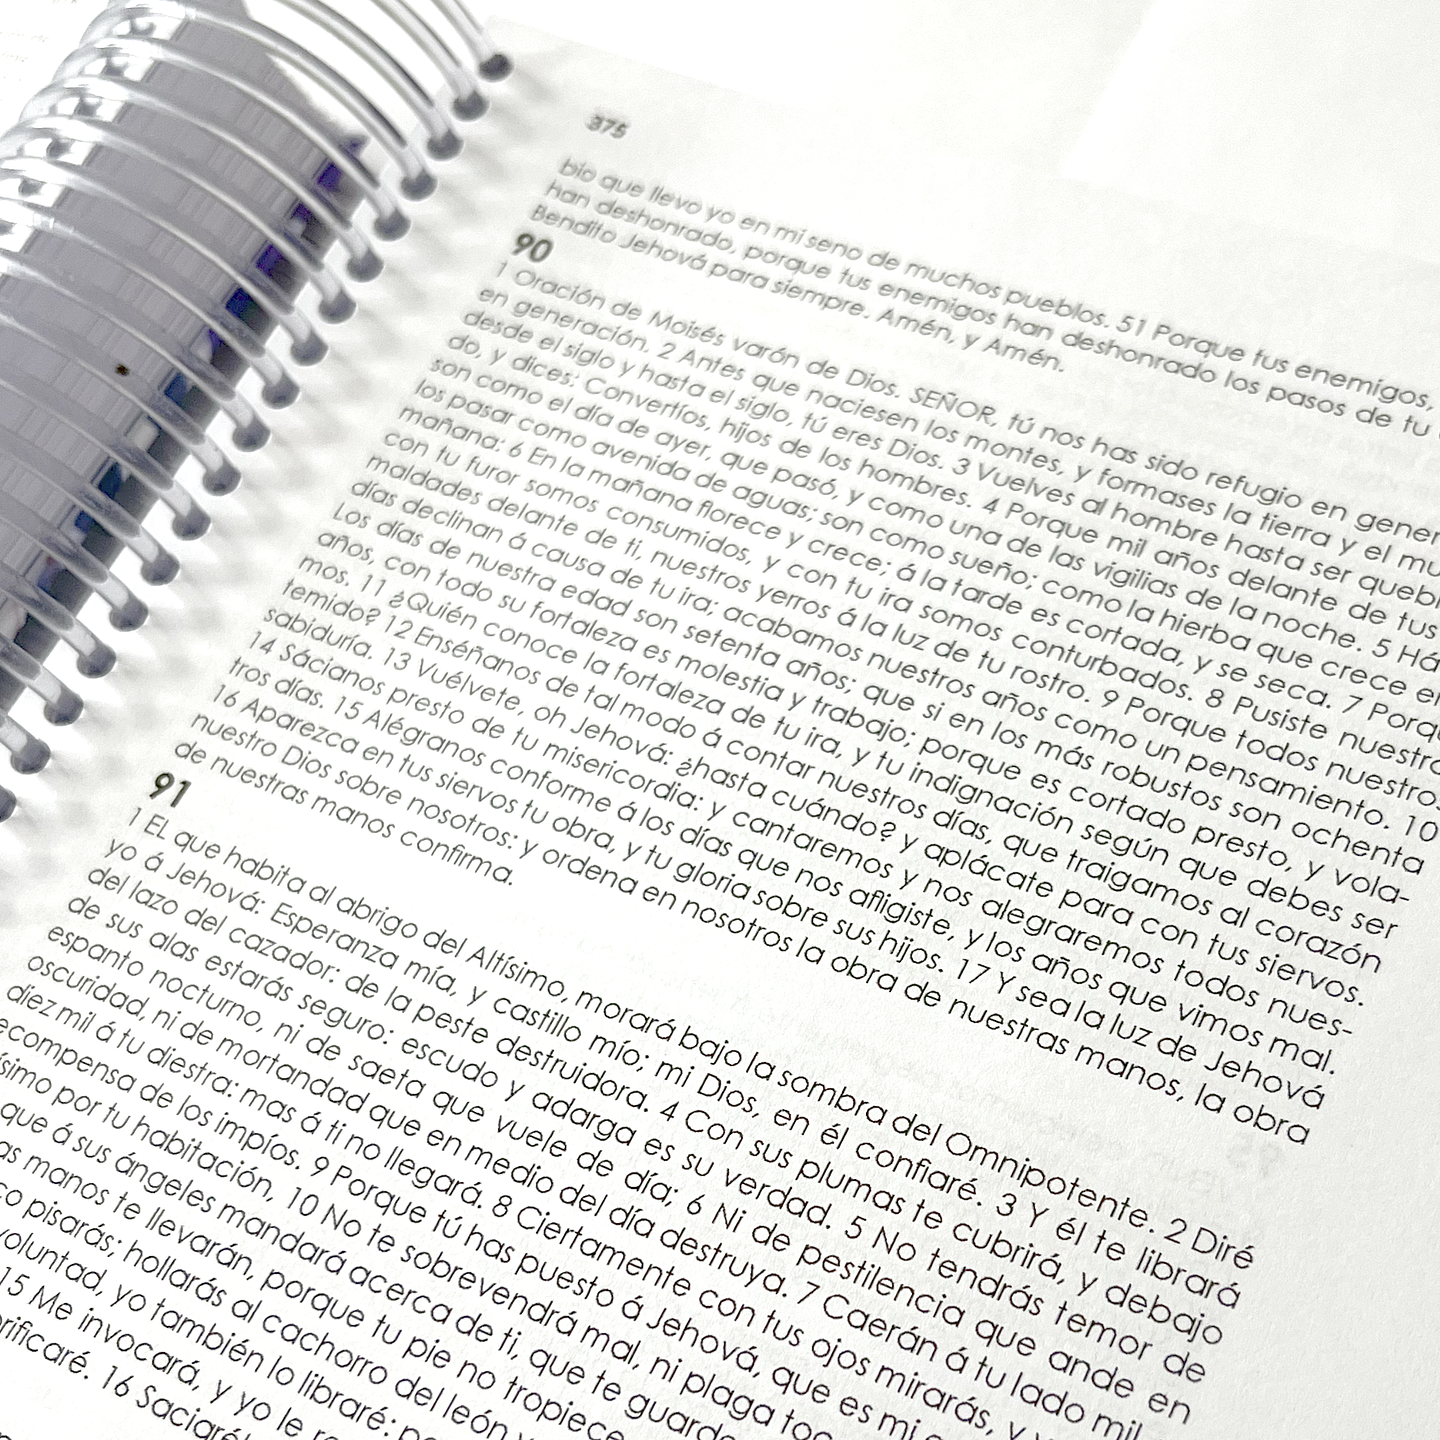 375
bio que llevo yo en mi seno de muchos pueblos. 51 Porque tus enemigos,
han deshonrado, porque tus enemigos han deshonrado los pasos de tu
Bendito Jehová para siempre. Amén, y Amén.
90
1 Oración de Moisés varón de Dios. SEÑOR, tú nos has sido refugio en gener
en generación. 2 Antes que naciesen los montes, y formases la tierra y el mu
desde el siglo y hasta el siglo, tú eres Dios. 3 Vuelves al hombre hasta ser quebr
do, y dices: Convertíos, hijos de los hombres. 4 Porque mil años delante de tus
son como el día de ayer, que pasó, y como una de las vigilias de la noche. 5 Há
los pasar como avenida de aguas; son como sueño; como la hierba que crece en
mañana: 6 En la mañana florece y crece; á la tarde es cortada, y se seca. 7 Porqu
con tu furor somos consumidos, y con tu ira somos conturbados. 8 Pusiste nuestra
maldades delante de ti, nuestros yerros á la luz de tu rostro. 9 Porque todos nuestros
días declinan á causa de tu ira; acabamos nuestros años como un pensamiento. 10
Los días de nuestra edad son setenta años; que si en los más robustos son ochenta
años, con todo su fortaleza es molestia y trabajo; porque es cortado presto, y vola-
mos. 11 ¿Quién conoce la fortaleza de tu ira, y tu indignación según que debes ser
temido? 12 Enséñanos de tal modo á contar nuestros días, que traigamos al corazón
sabiduría. 13 Vuélvete, oh Jehová: ¿hasta cuándo? y aplácate para con tus siervos.
14 Sácianos presto de tu misericordia: y cantaremos y nos alegraremos todos nues-
tros días. 15 Alégranos conforme á los días que nos afligiste, y los años que vimos mal.
16 Aparezca en tus siervos tu obra, y tu gloria sobre sus hijos. 17 Y sea la luz de Jehová
nuestro Dios sobre nosotros: y ordena en nosotros la obra de nuestras manos, la obra
de nuestras manos confirma.
91
1 EL que habita al abrigo del Altísimo, morará bajo la sombra del Omnipotente. 2 Diré
yo á Jehová: Esperanza mía, y castillo mío; mi Dios, en él confiaré. 3 Y él te librará
del lazo del cazador: de la peste destruidora. 4 Con sus plumas te cubrirá, y debajo
de sus alas estarás seguro: escudo y adarga es su verdad. 5 No tendrás temor de
espanto nocturno, ni de saeta que vuele de día; 6 Ni de pestilencia que ande en
oscuridad, ni de mortandad que en medio del día destruya. 7 Caerán á tu lado mil,
diez mil á tu diestra: mas á ti no llegará. 8 Ciertamente con tus ojos mirarás, y
ecompensa de los impíos. 9 Porque tú has puesto á Jehová, que es mi
ísimo por tu habitación, 10 No te sobrevendrá mal, ni plaga
que á sus ángeles mandará acerca de ti, que te guarde
as manos te llevarán, porque tu pie no tropiece
co pisarás; hollarás al cachorro del león y
voluntad, yo también lo libraré:
15 Me invocará, y yo le
rificaré. 16